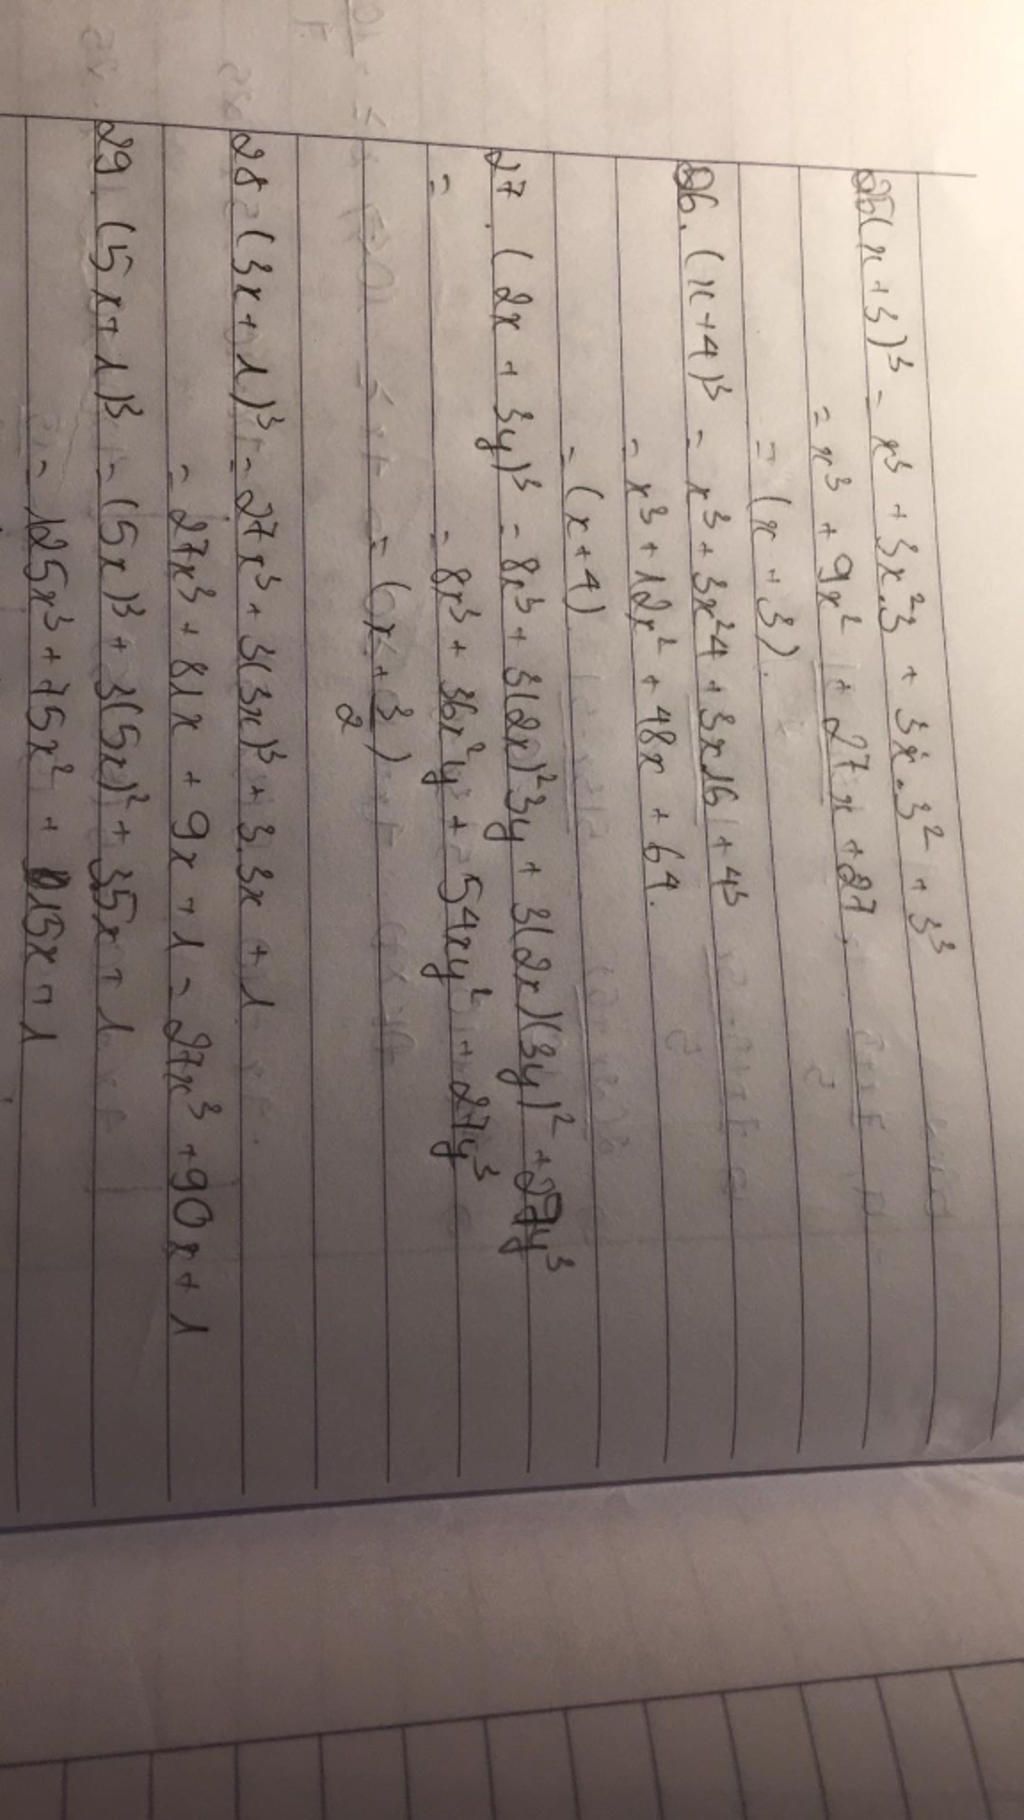 25(x+3)³ = x³ + 3x².3 + 3x.3² + 3³
= x³ + 9x² + 27x + 27.
= (x + 3).
26. (x+4)³ = x³ + 3x²4 + 3x16 + 4³
= x³ + 12x² + 48x + 64.
= (x+4)
27. (2x + 3y)³ = 8x³ + 3(2x)²3y + 3(2x)(3y)² + 27y³
= = 8x³ + 36x²y + 54xy² + 27y³
= (6x + 3/2)
28 (3x+1)³ = 27x³ + 3(3x)³ + 3.3x + 1
= 27x³ + 81x + 9x + 1 = 27x³ + 90x + 1
29. (5x+1)³ = (5x)³ + 3(5x)² + 35x + 1
= 125x³ + 75x² + 15x + 1